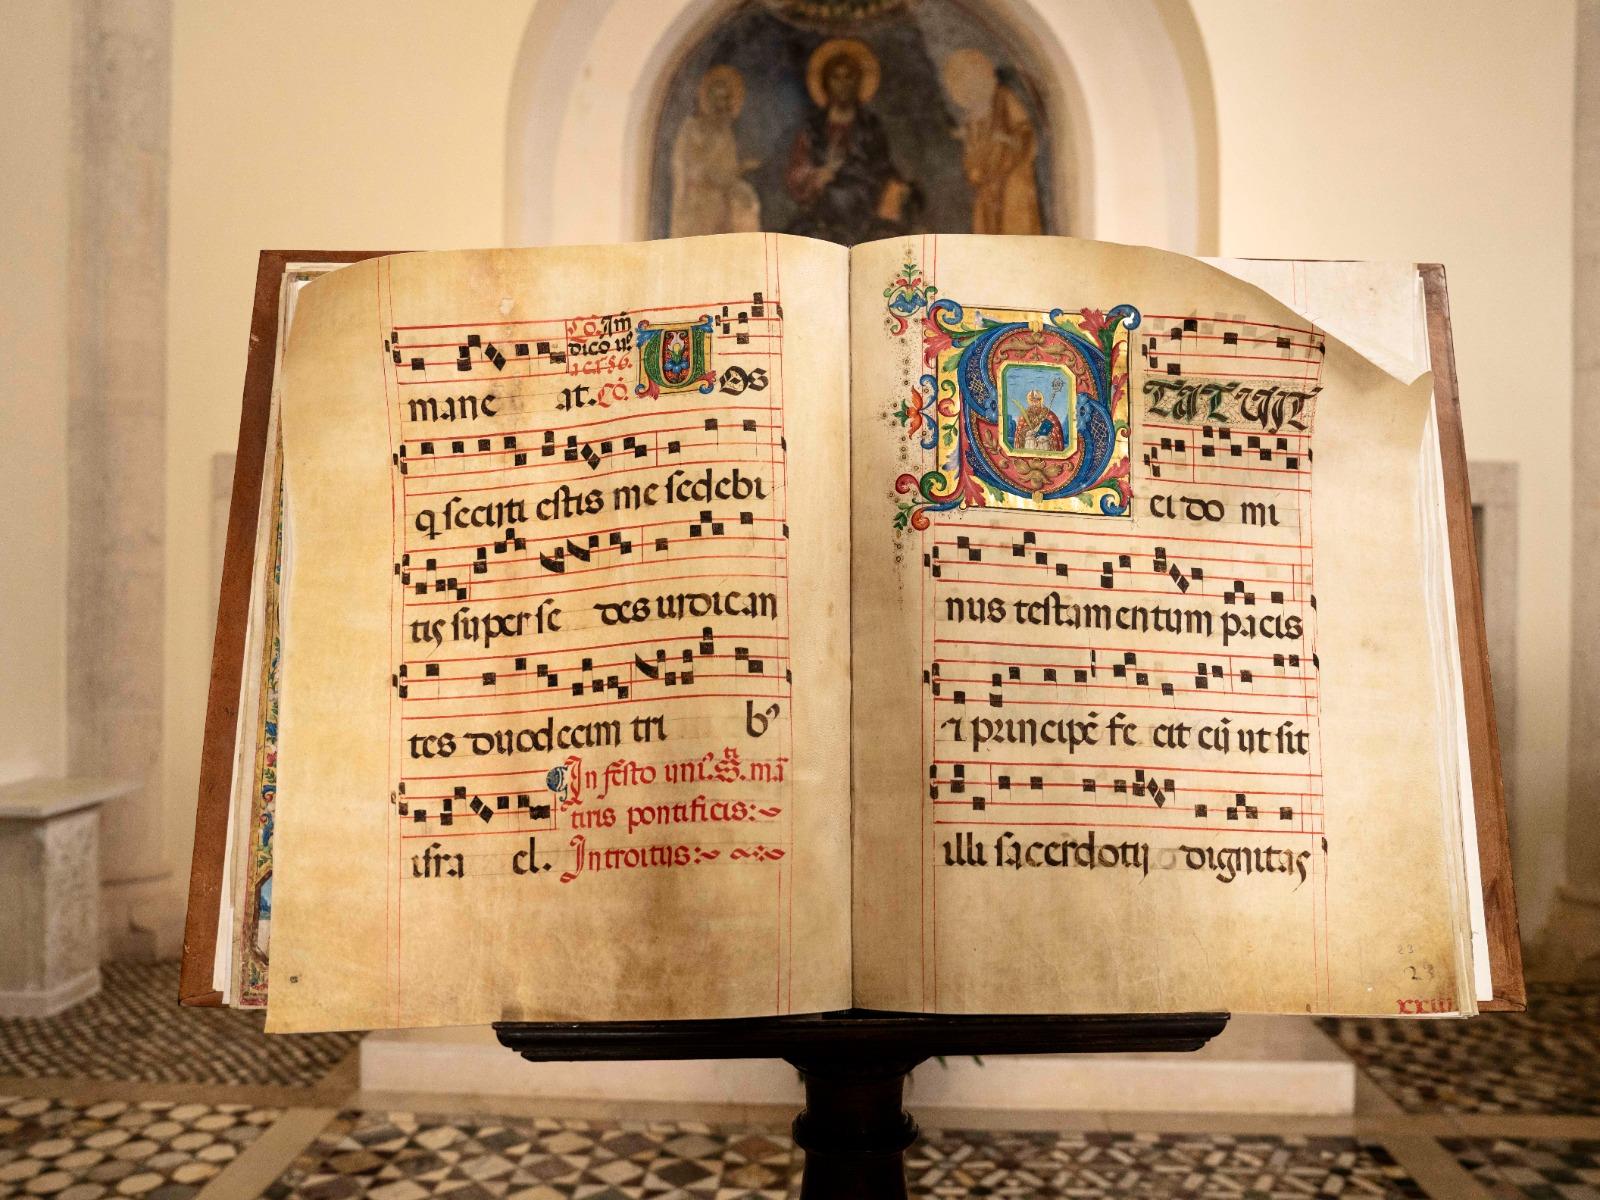 Cō. Am̄
dico uo
mane at. Cō. UOS
q secuti estis me sedebi
tis super se des iudican
tes duodecim tri bꝰ
In festo uni.s̄.ti mā
tiris pontificis:
isra el. Introitus:
STATUIT
ei do mi
nus testamentum pacis
⁊ principē fe cit eū ut sit
illi sacerdotij dignitas
23
23
xxiii